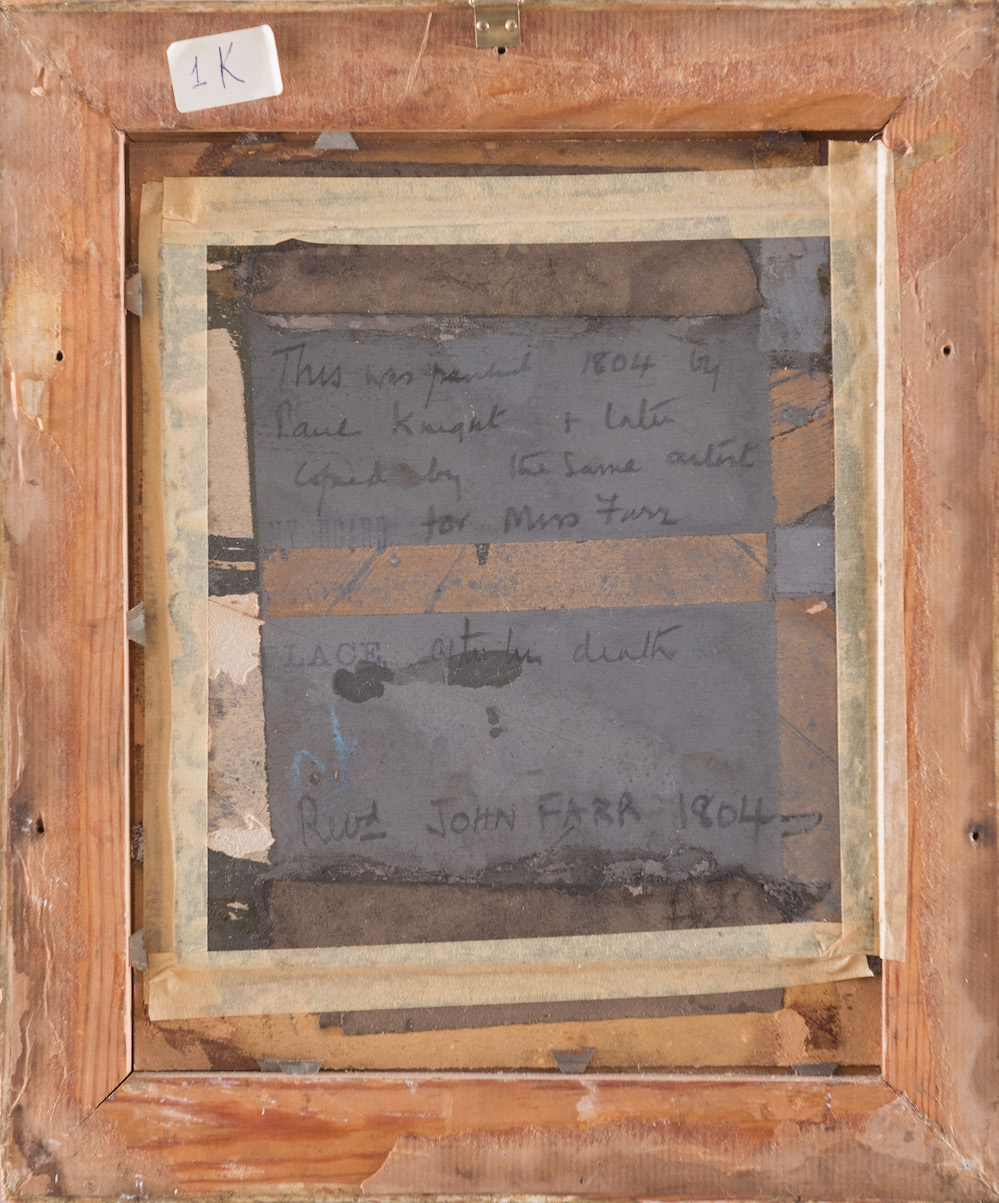 1 K
This was painted 1804 by
Paul Knight + later
copied by the same artist
for Miss Farr
BOARD
LACE after his death
Revd JOHN FARR 1804